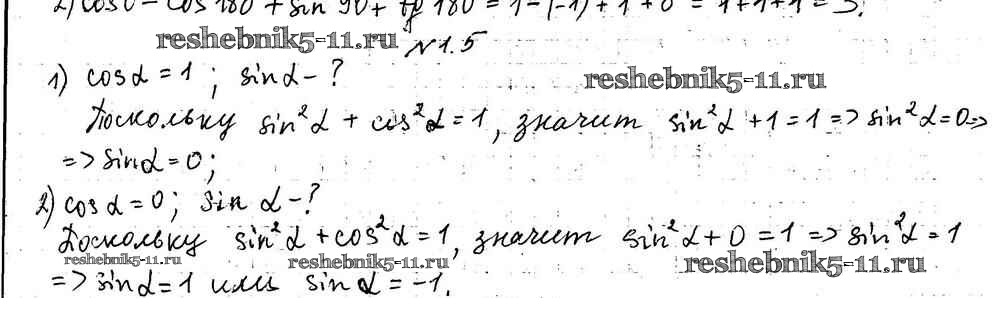 2) cos0 - cos 180 + sin 90 + tg 180 = 1 - (-1) + 1 + 0 = 1+1+1 = 3.
reshebnik5-11.ru
N1.5
1) cosα = 1 ; sinα - ?
reshebnik5-11.ru
Поскольку sin²α + cos²α = 1, значит sin²α + 1 = 1 => sin²α = 0 =>
=> sinα = 0;
2) cos α = 0; sin α - ?
Поскольку sin²α + cos²α = 1, значит sin²α + 0 = 1 => sin²α = 1
reshebnik5-11.ru reshebnik5-11.ru reshebnik5-11.ru
=> sinα = 1 или sin α = -1.